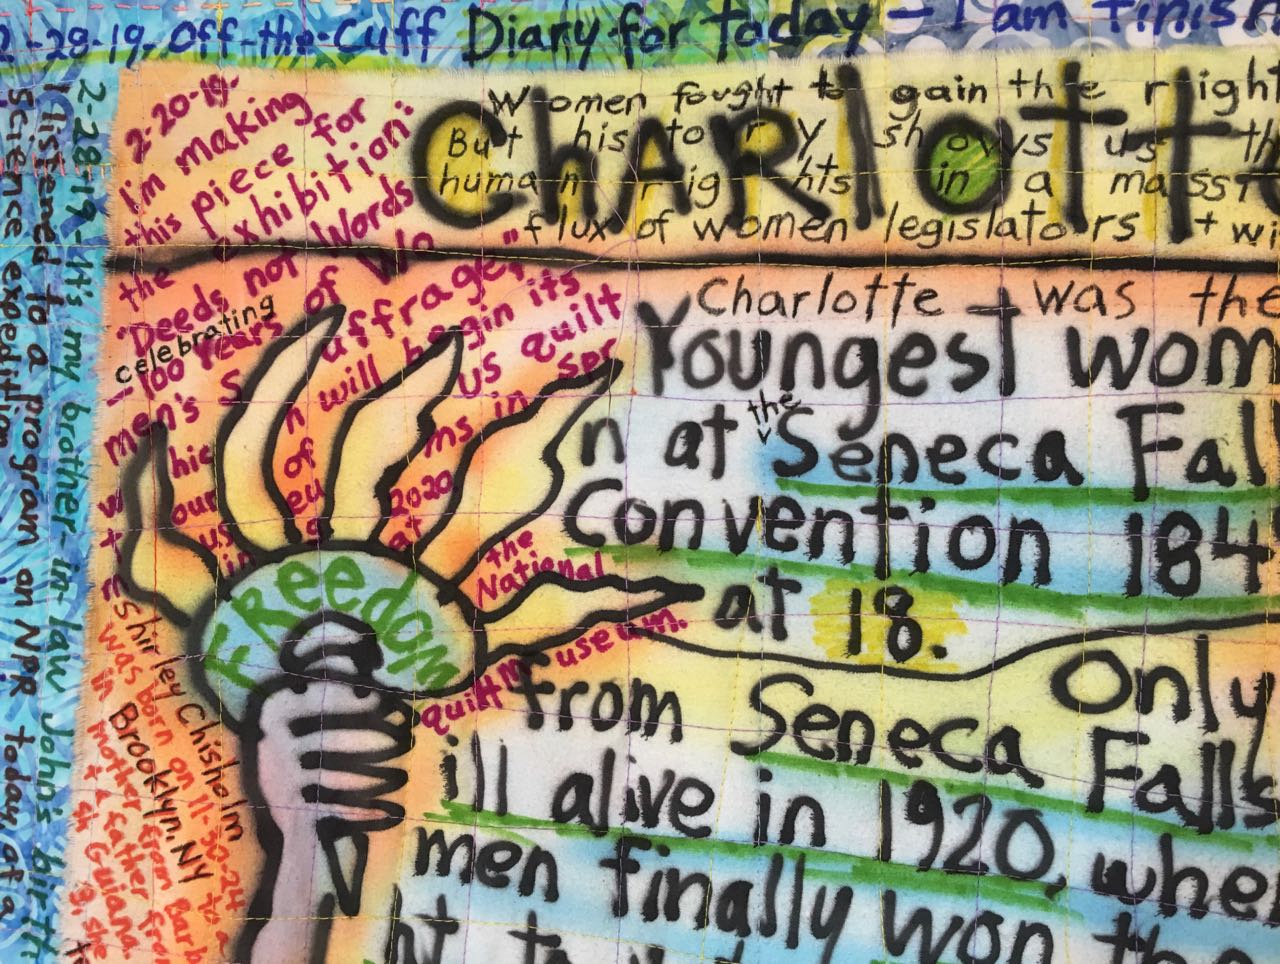 -28-19- Off-the-Cuff Diary for today - I am finish
2-28-19- It's my brother-in-law John's birth
I listened to a program on NPR today of a
Science expedition
2-20-19-
I'm making
this piece for
the exhibition:
"Deeds not Words
celebrating
-100 Years of Wo
men's Suffrage,"
will begin its
of us quilt
in
2020
at
the
National
Quilt Museum.
CHARlotte
Women fought to gain the right
But history shows us th
human rights in a mass
flux of women legislators + wi
Charlotte was the
Youngest wom
n at the Seneca Fal
Convention 184
at 18.
Only
from Seneca Falls
ill alive in 1920, whe
men finally won the
ht to
FReedom
Shirley Chisholm
was born on 11-30-24 to a
Brooklyn, NY
mother from Barb
+ a father from
Guiana.
3, she